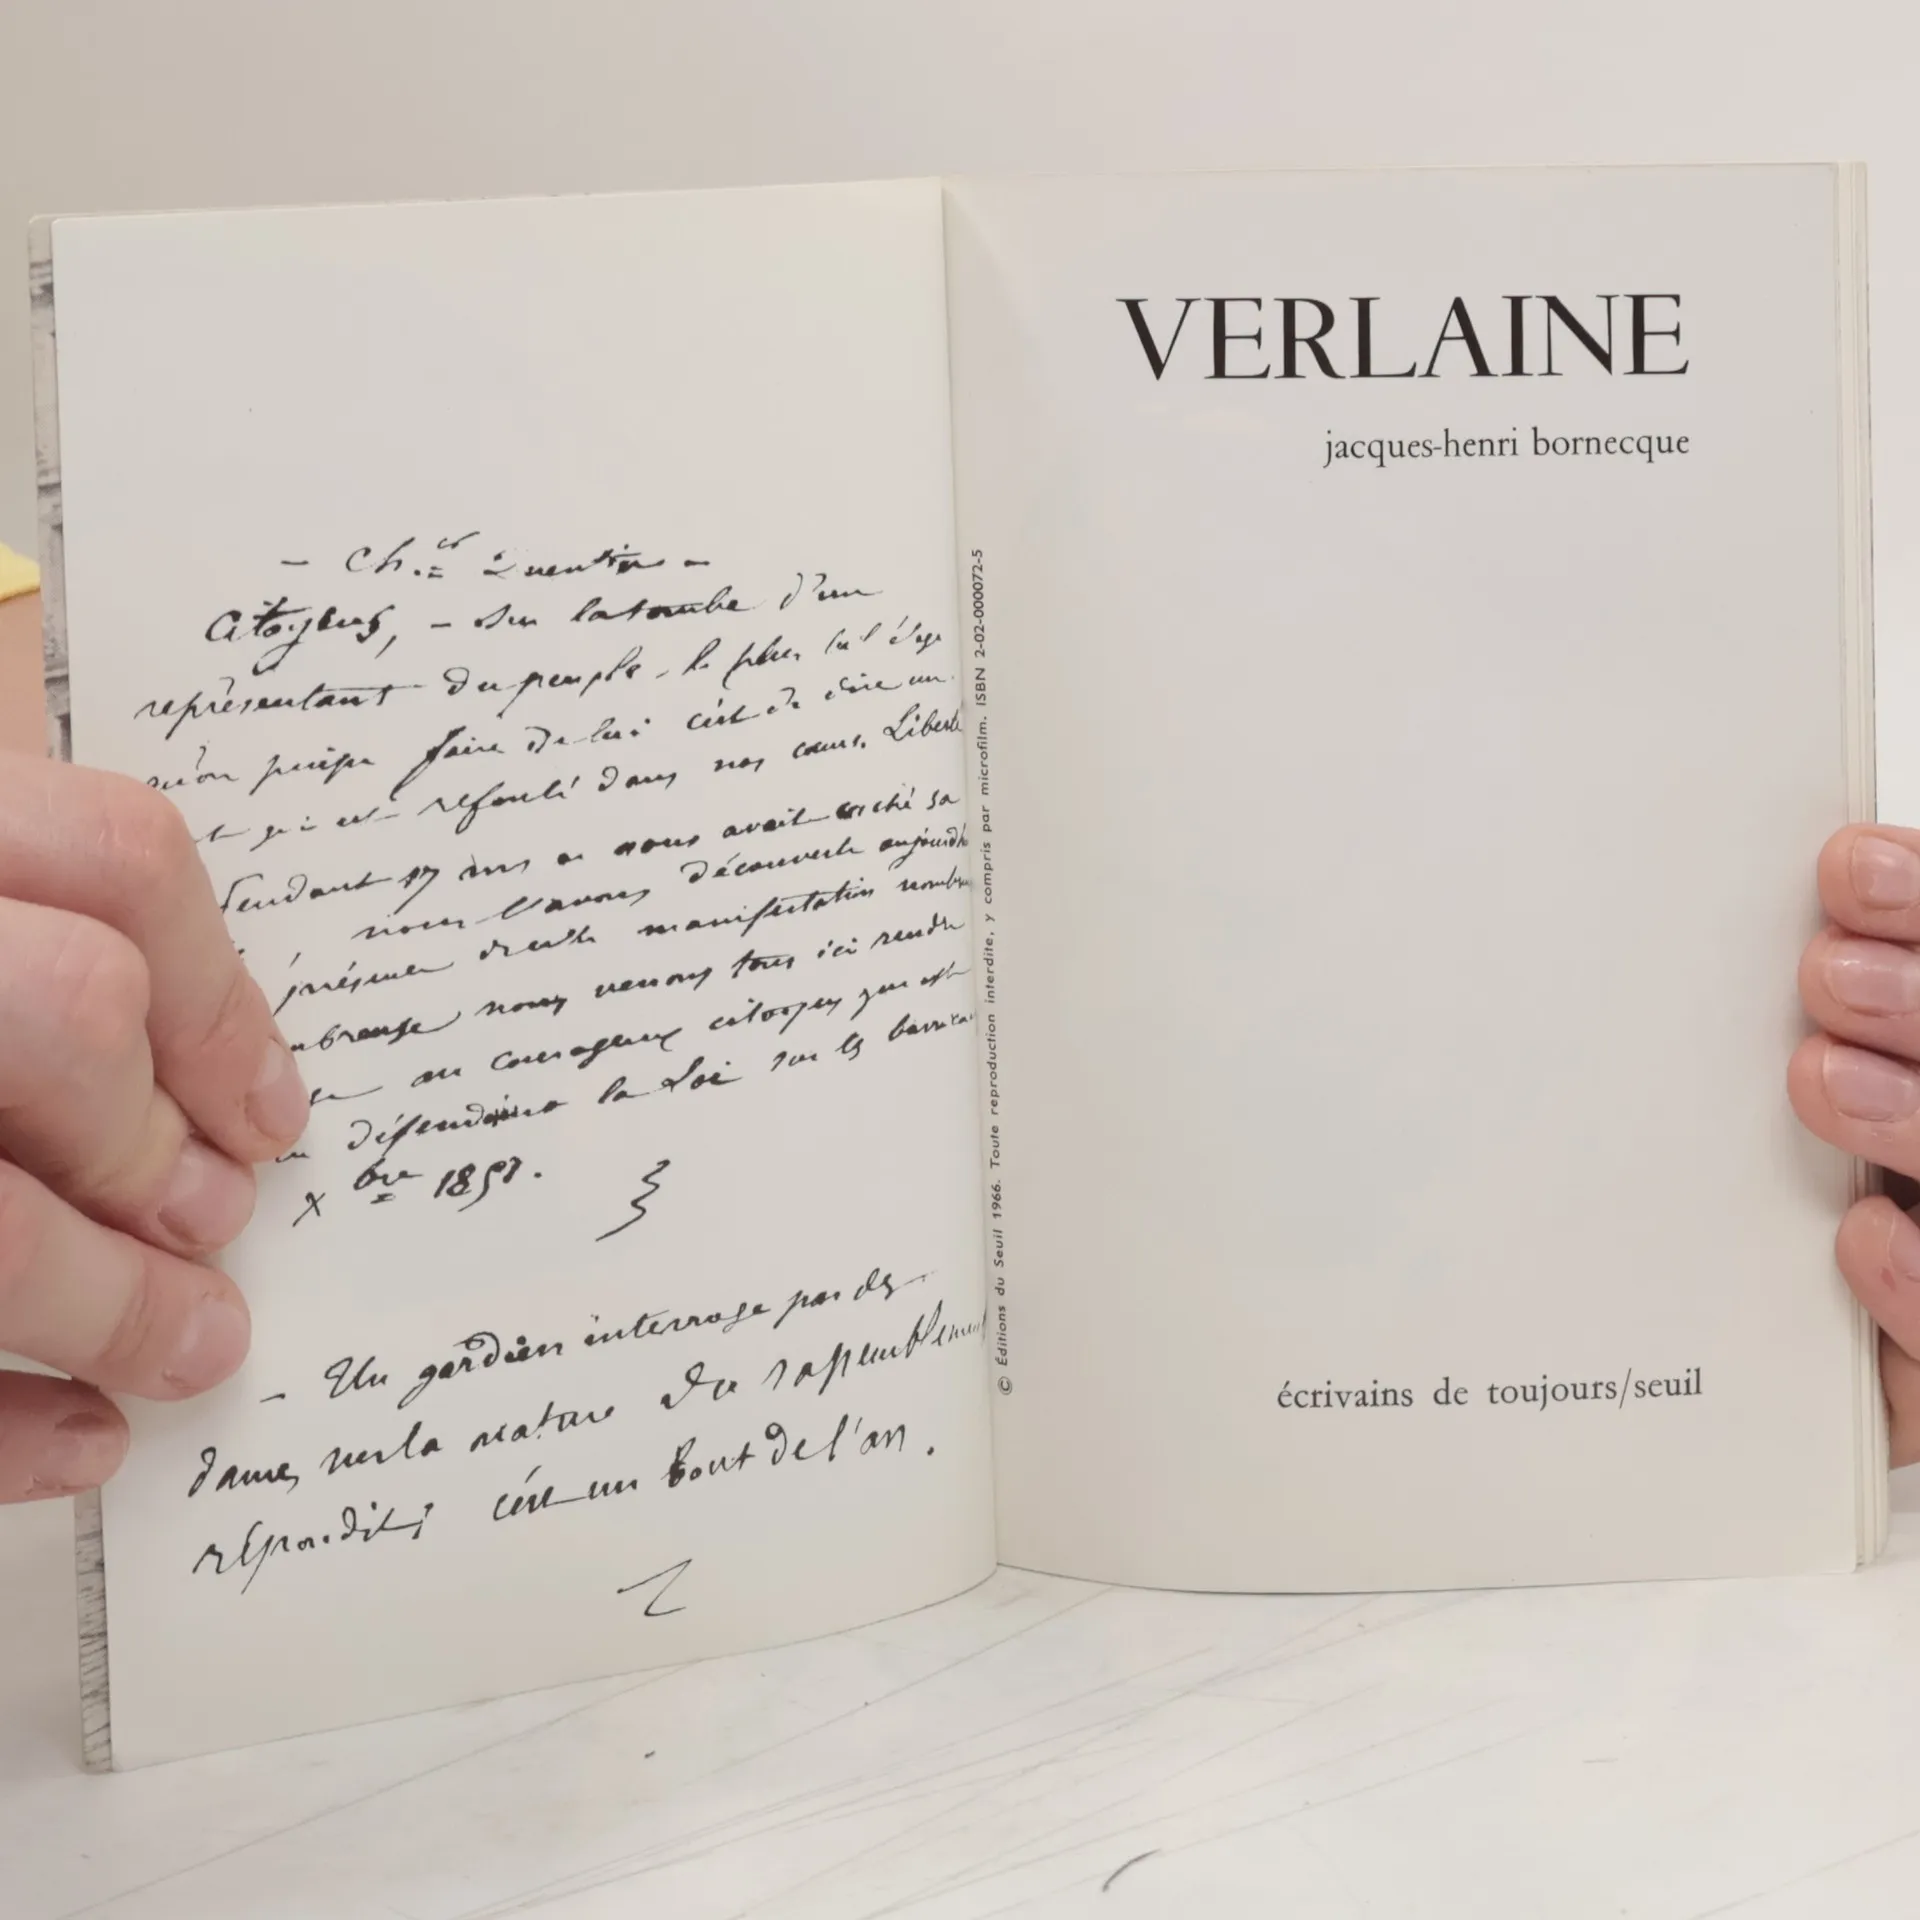 — Ch.es Quentin —
Citoyens, — Sur la tombe d'un
représentant du peuple, le plus bel éloge
qu'on puisse faire de lui c'est de dire un
qui est refoulé dans nos cœurs. Liberté
Pendant 17 ans on nous avait caché sa
nous l'avons découverte aujourd'h
manifestation nombr
nous venons tous ici rendre
au courageux citoyen qui est
défendant la Loi sur les barrica
Xbre 1851.
— Un gardien interrogé par des
dames sur la nature du rassemblement
répondit; c'est un bout de l'an.
© Éditions du Seuil 1966. Toute reproduction interdite, y compris par microfilm. ISBN 2-02-000072-5
VERLAINE
jacques-henri bornecque
écrivains de toujours/seuil